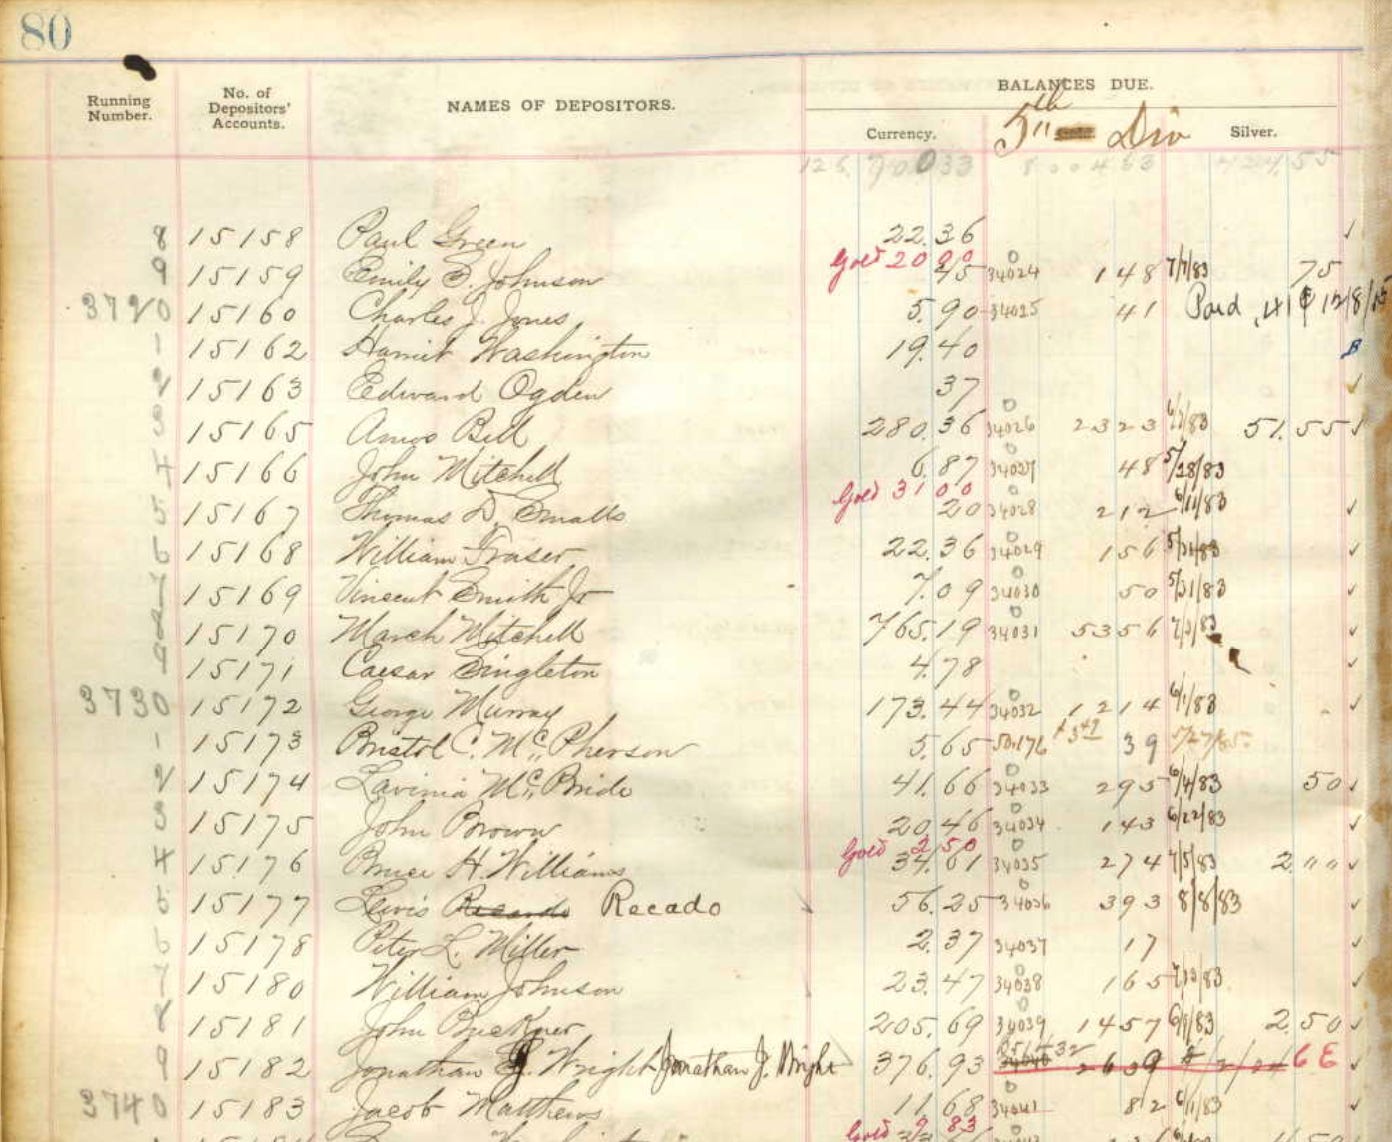 80
BALANCES DUE.
Running Number. No. of Depositors' Accounts. NAMES OF DEPOSITORS. Currency. 5th Div Silver.
8 15158 Paul Green 22.36 ✓
Gold 20 00
9 15159 Emily E. Johnson 45 34024 0 148 7/7/83 75
3720 15160 Charles J. Jones 5.90 34025 41 Paid .41
1 15162 Harriet Washington 19.40 B
2 15163 Edward Ogden 37 ✓
3 15165 Amos Bell 280.36 34026 0 2323 83 51.55 ✓
4 15166 John Mitchell 6.87 34027 0 48 5/28/83
Gold 31 00
5 15167 Thomas D. Smalls 20 34028 0 212 6/11/83 ✓
6 15168 William Fraser 22.36 34029 0 156 5/31/83 ✓
7 15169 Vincent Smith Jr 7.09 34030 0 50 5/31/83 ✓
8 15170 March Mitchell 765.19 34031 0 5356 7/3/83 ✓
9 15171 Caesar Singleton 4.78 ✓
3730 15172 George Murray 173.44 34032 0 1214 6/1/83 ✓
1 15173 Bristol C. McPherson 5.65 50.176 39 5/27/85
2 15174 Lavinia McBride 41.66 34033 0 295 6/4/83 50 ✓
3 15175 John Brown 20.46 34034 0 143 6/22/83 ✓
Gold 2 50
4 15176 Bruce H. Williams 34.61 34035 0 274 7/5/83 2. " " ✓
5 15177 Lewis Recardo Recado 56.25 34036 0 393 8/8/83 ✓
6 15178 Peter L. Miller 2.37 34037 17 ✓
7 15180 William Johnson 23.47 34038 0 165 83 ✓
8 15181 John Buckner 205.69 34039 0 1457 6/9/83 2.50 ✓
9 15182 Jonathan J. Wright Jonathan J. Wright 376.93 34040 2639 6E ✓
3740 15183 Jacob Matthews 11.68 34041 0 82 6/1/83 ✓
Gold 2 83